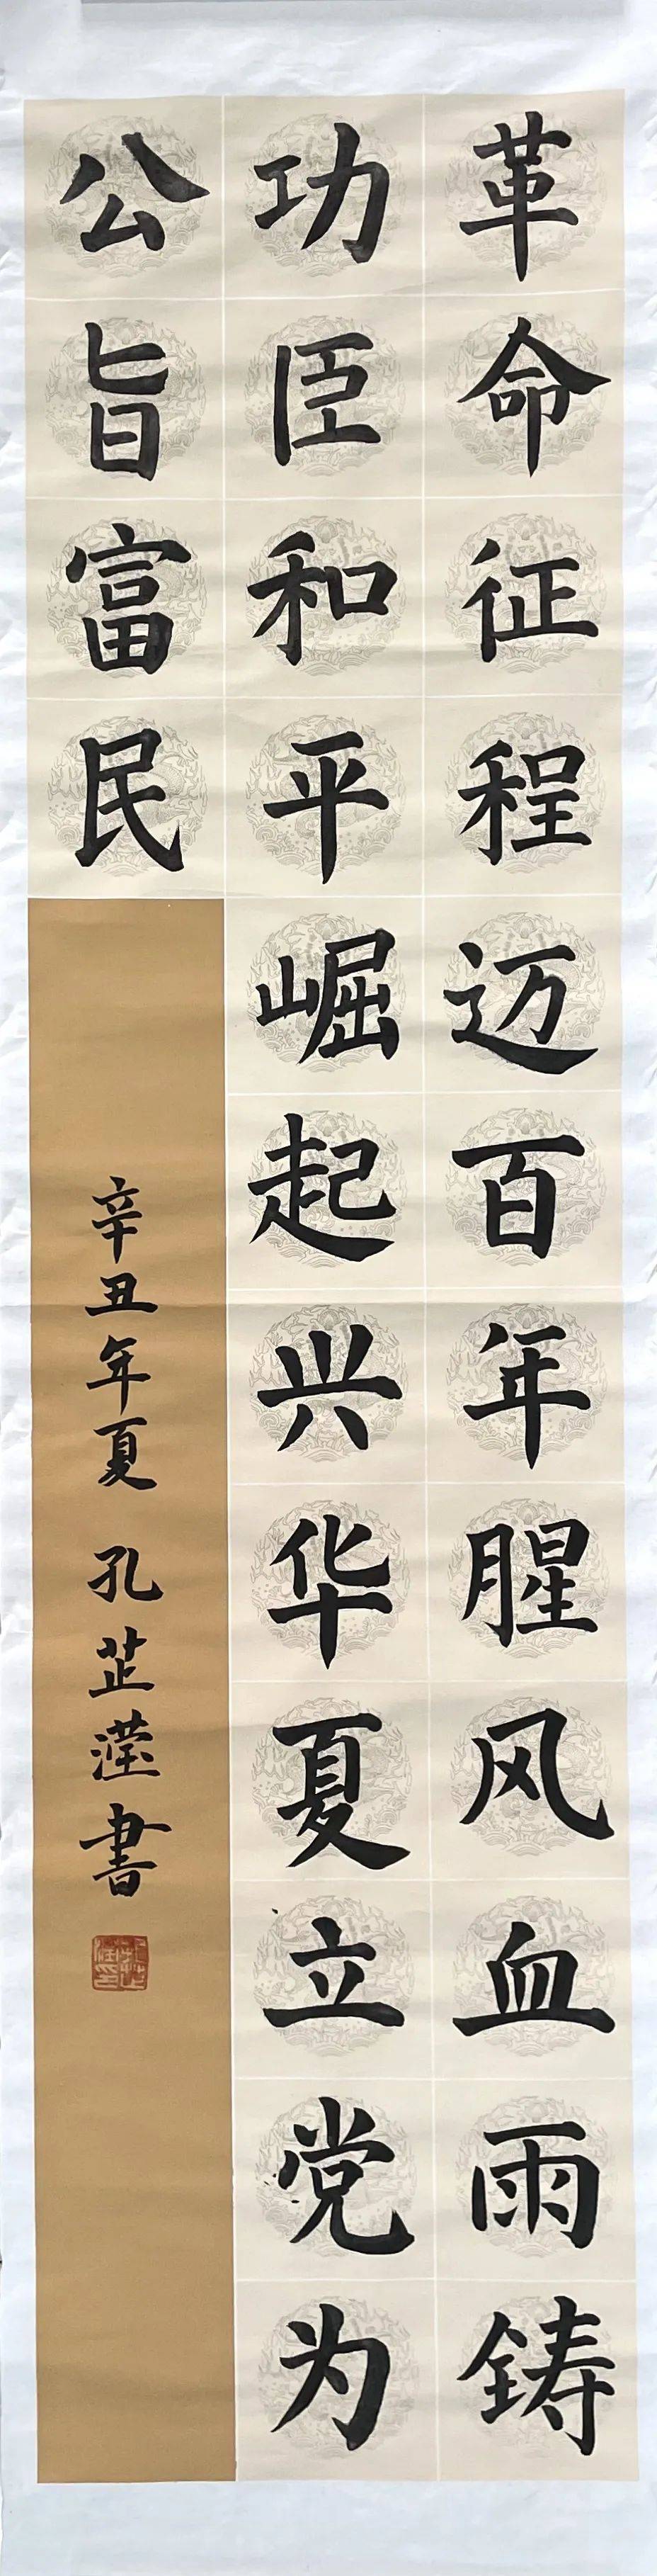 革命征程迈百年腥风血雨铸
功臣和平崛起兴华夏立党为
公旨富民
辛丑年夏 孔芷滢書